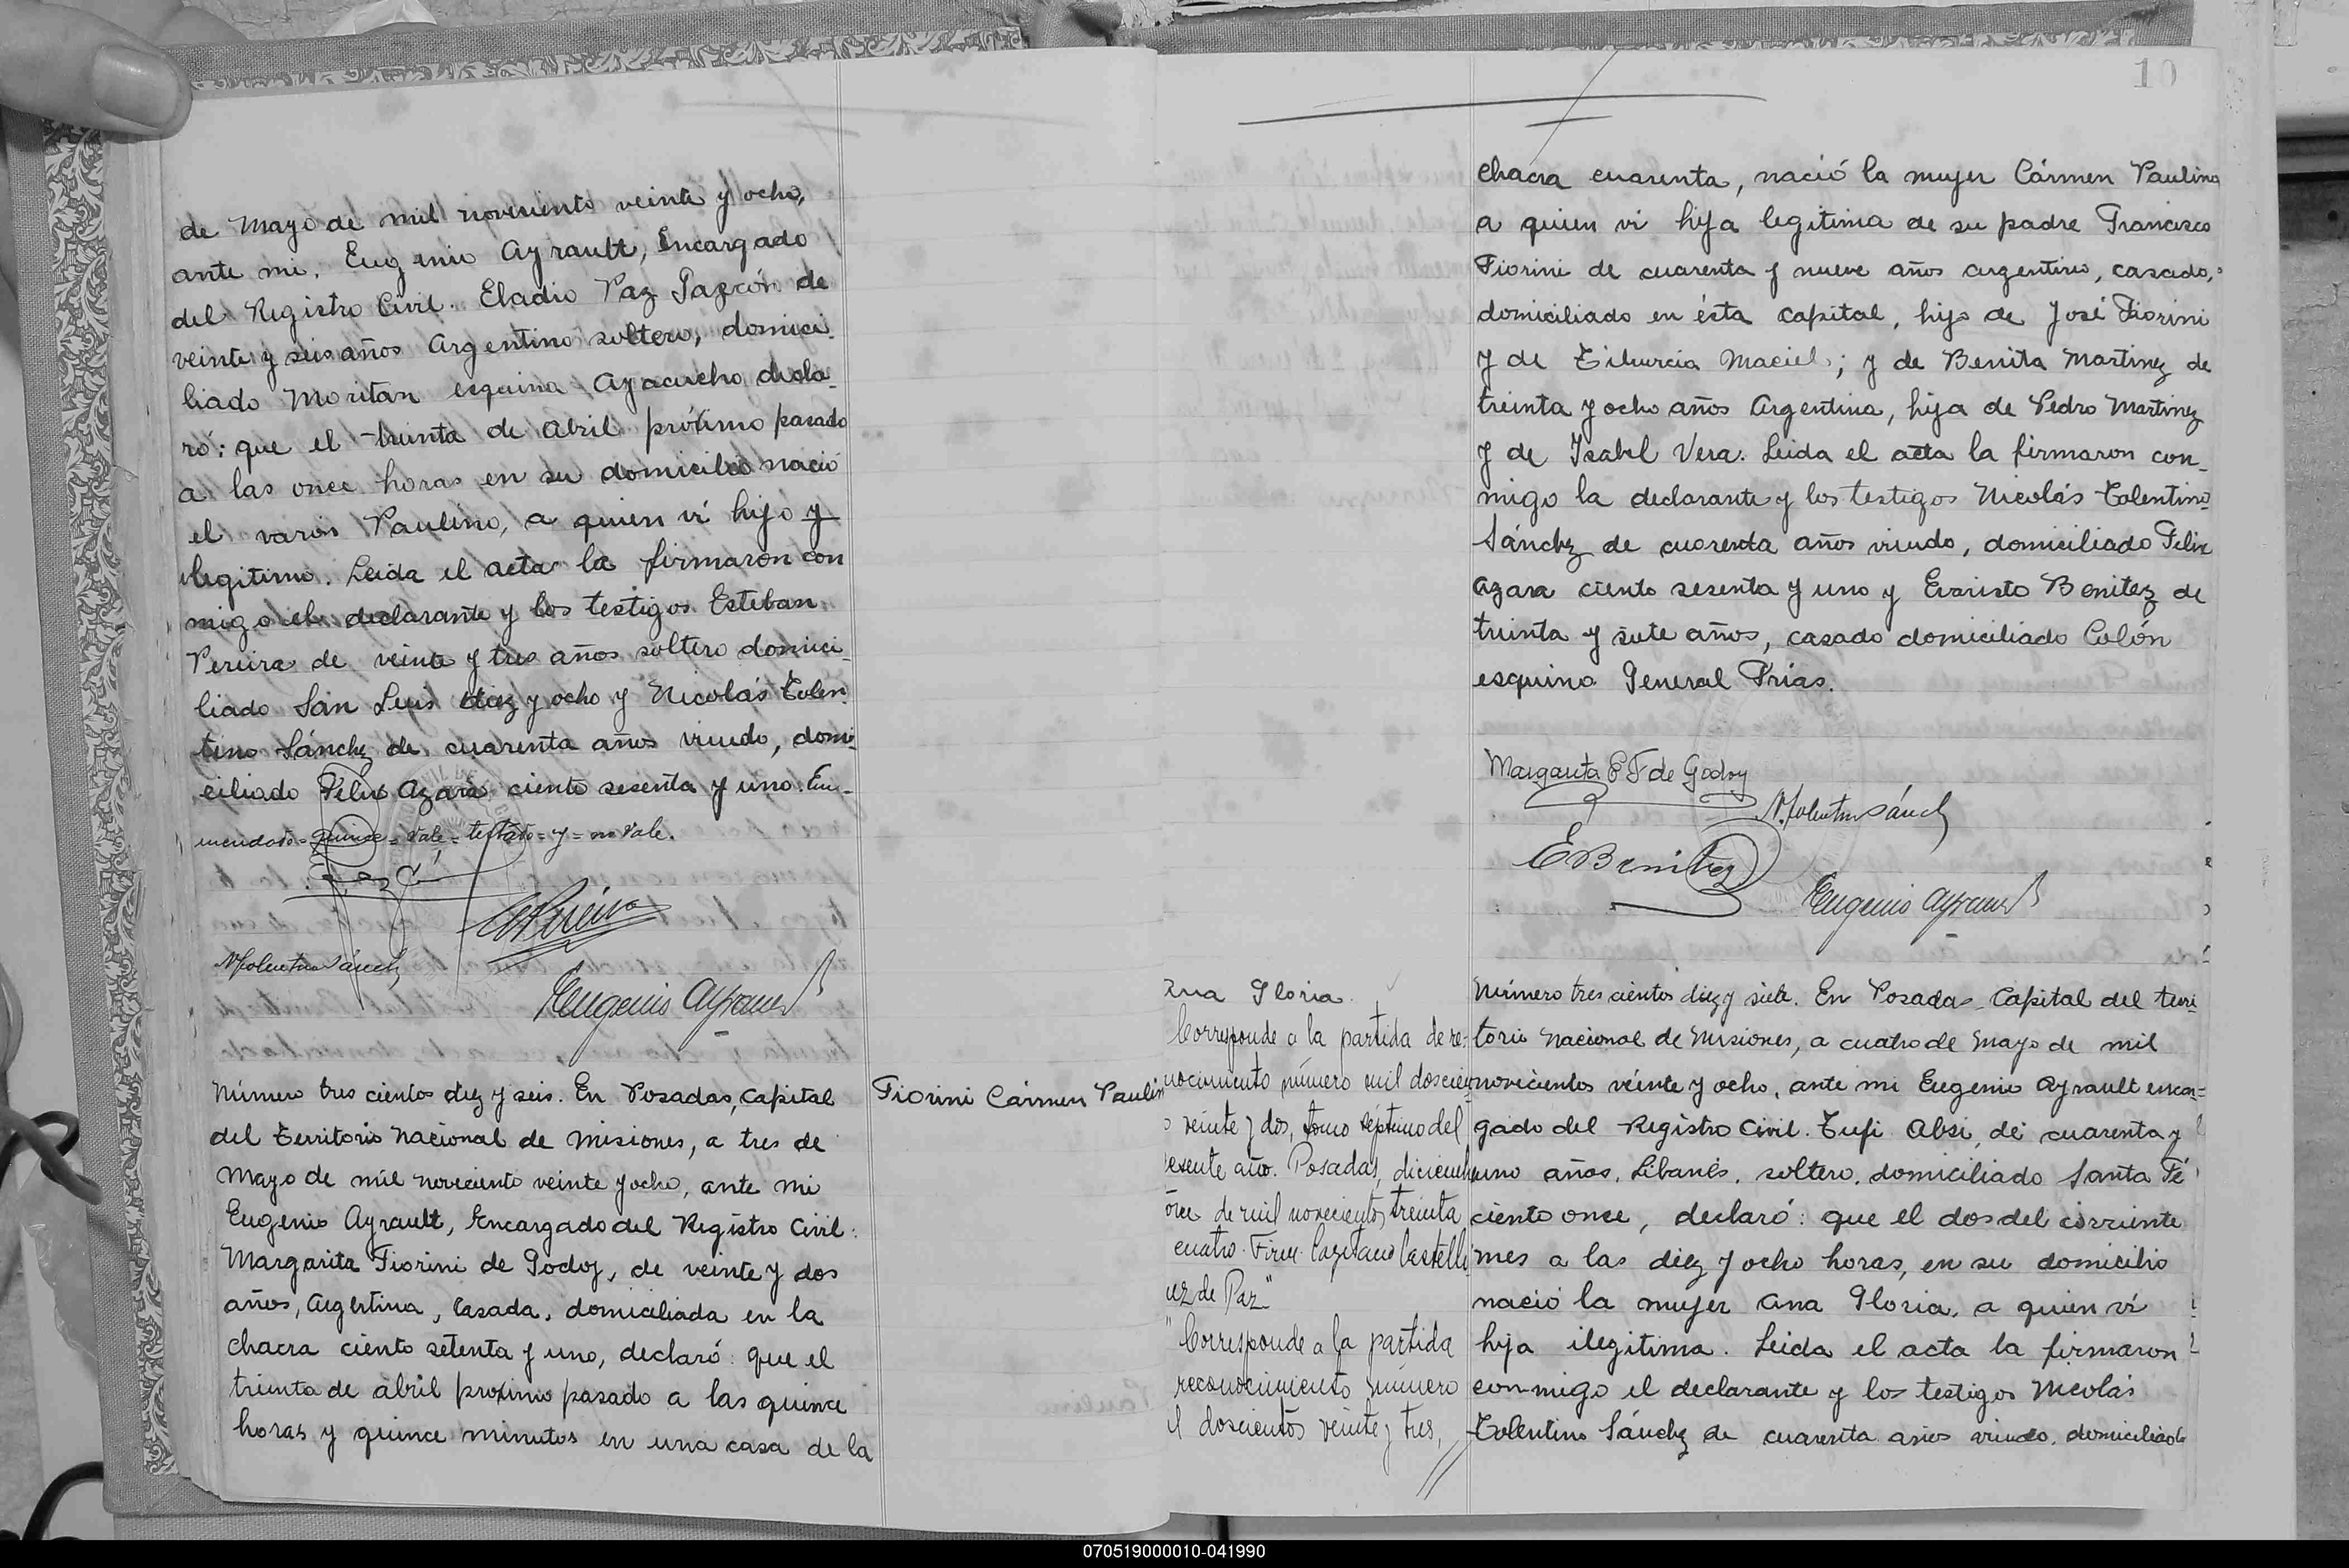 de Mayo de mil noveciento veinte y ocho,
ante mi, Eugenio Ayrault, Encargado
del Registro Civil. Eladio Paz de
veinte y seis años Argentino soltero, domici-
liado Moritan esquina Ayacucho decla-
ró: que el treinta de Abril próximo pasado
a las once horas en su domicilio nació
el varón Paulino, a quien ví hijo y
ilegitimo. Leida el acta la firmaron con
migo el declarante y los testigos Esteban
Pereira de veinte y tres años soltero domici-
liado San Luis diez y ocho y Nicolás Tolen-
tino Sánchez de cuarenta años viudo, domi-
ciliado Félix Azara ciento sesenta y uno. En-
mendado=quince=vale=testado=y=no vale.
N. Tolentino Sánchez
Eugenio Ayrault
Número tres cientos diez y seis. En Posadas, Capital
del Territorio Nacional de Misiones, a tres de
Mayo de mil noveciento veinte y ocho, ante mi
Eugenio Ayrault, Encargado del Registro Civil.
Margarita Fiorini de Godoy, de veinte y dos
años, Argentina, Casada, domiciliada en la
chacra ciento setenta y uno, declaró: que el
treinta de abril proximo pasado a las quince
horas y quince minutos en una casa de la
Fiorini Cármen Paulin
10
chacra cuarenta, nació la mujer Cármen Paulina
a quien vi hija legitima de su padre Francisco
Fiorini de cuarenta y nueve años argentino, casado,
domiciliado en ésta capital, hijo de José Fiorini
y de Tiburcia Maciel; y de Benita Martinez de
treinta y ocho años Argentina, hija de Pedro Martinez
y de Isabel Vera. Leida el acta la firmaron con-
migo la declarante y los testigos Nicolás Tolentino
Sánchez de cuarenta años viudo, domiciliado Felix
Azara ciento sesenta y uno y Evaristo Benitez de
treinta y siete años, casado domiciliado Colón
esquina General Frías.
Margarita P F de Godoy
N. Tolentino Sánch
E Benitez
Eugenio Ayrault
Ana Gloria.
Corresponde a la partida de re-
nocimiento número mil doscien-
veinte y dos, tomo séptimo del
esente año. Posadas, diciemb
once de mil novecientos treinta
cuatro. Firm. Cayetano Castelli
uez de Paz"
"Corresponde a la partida
reconocimiento número
il doscientos veinte y tres,
Número tres cientos diez y siete. En Posadas Capital del terri-
torio Nacional de Misiones, a cuatro de Mayo de mil
novecientos veinte y ocho, ante mi Eugenio Ayrault encar-
gado del Registro Civil. Tufi Absi, de cuarenta y
uno años, Libanés, soltero, domiciliado Santa Fé
ciento once, declaró: que el dos del corriente
mes a las diez y ocho horas, en su domicilio
nació la mujer Ana Gloria, a quien ví
hija ilegitima. Leida el acta la firmaron
conmigo el declarante y los testigos Nicolás
Tolentino Sánchez de cuarenta años viudo, domiciliado
070519000010-041990